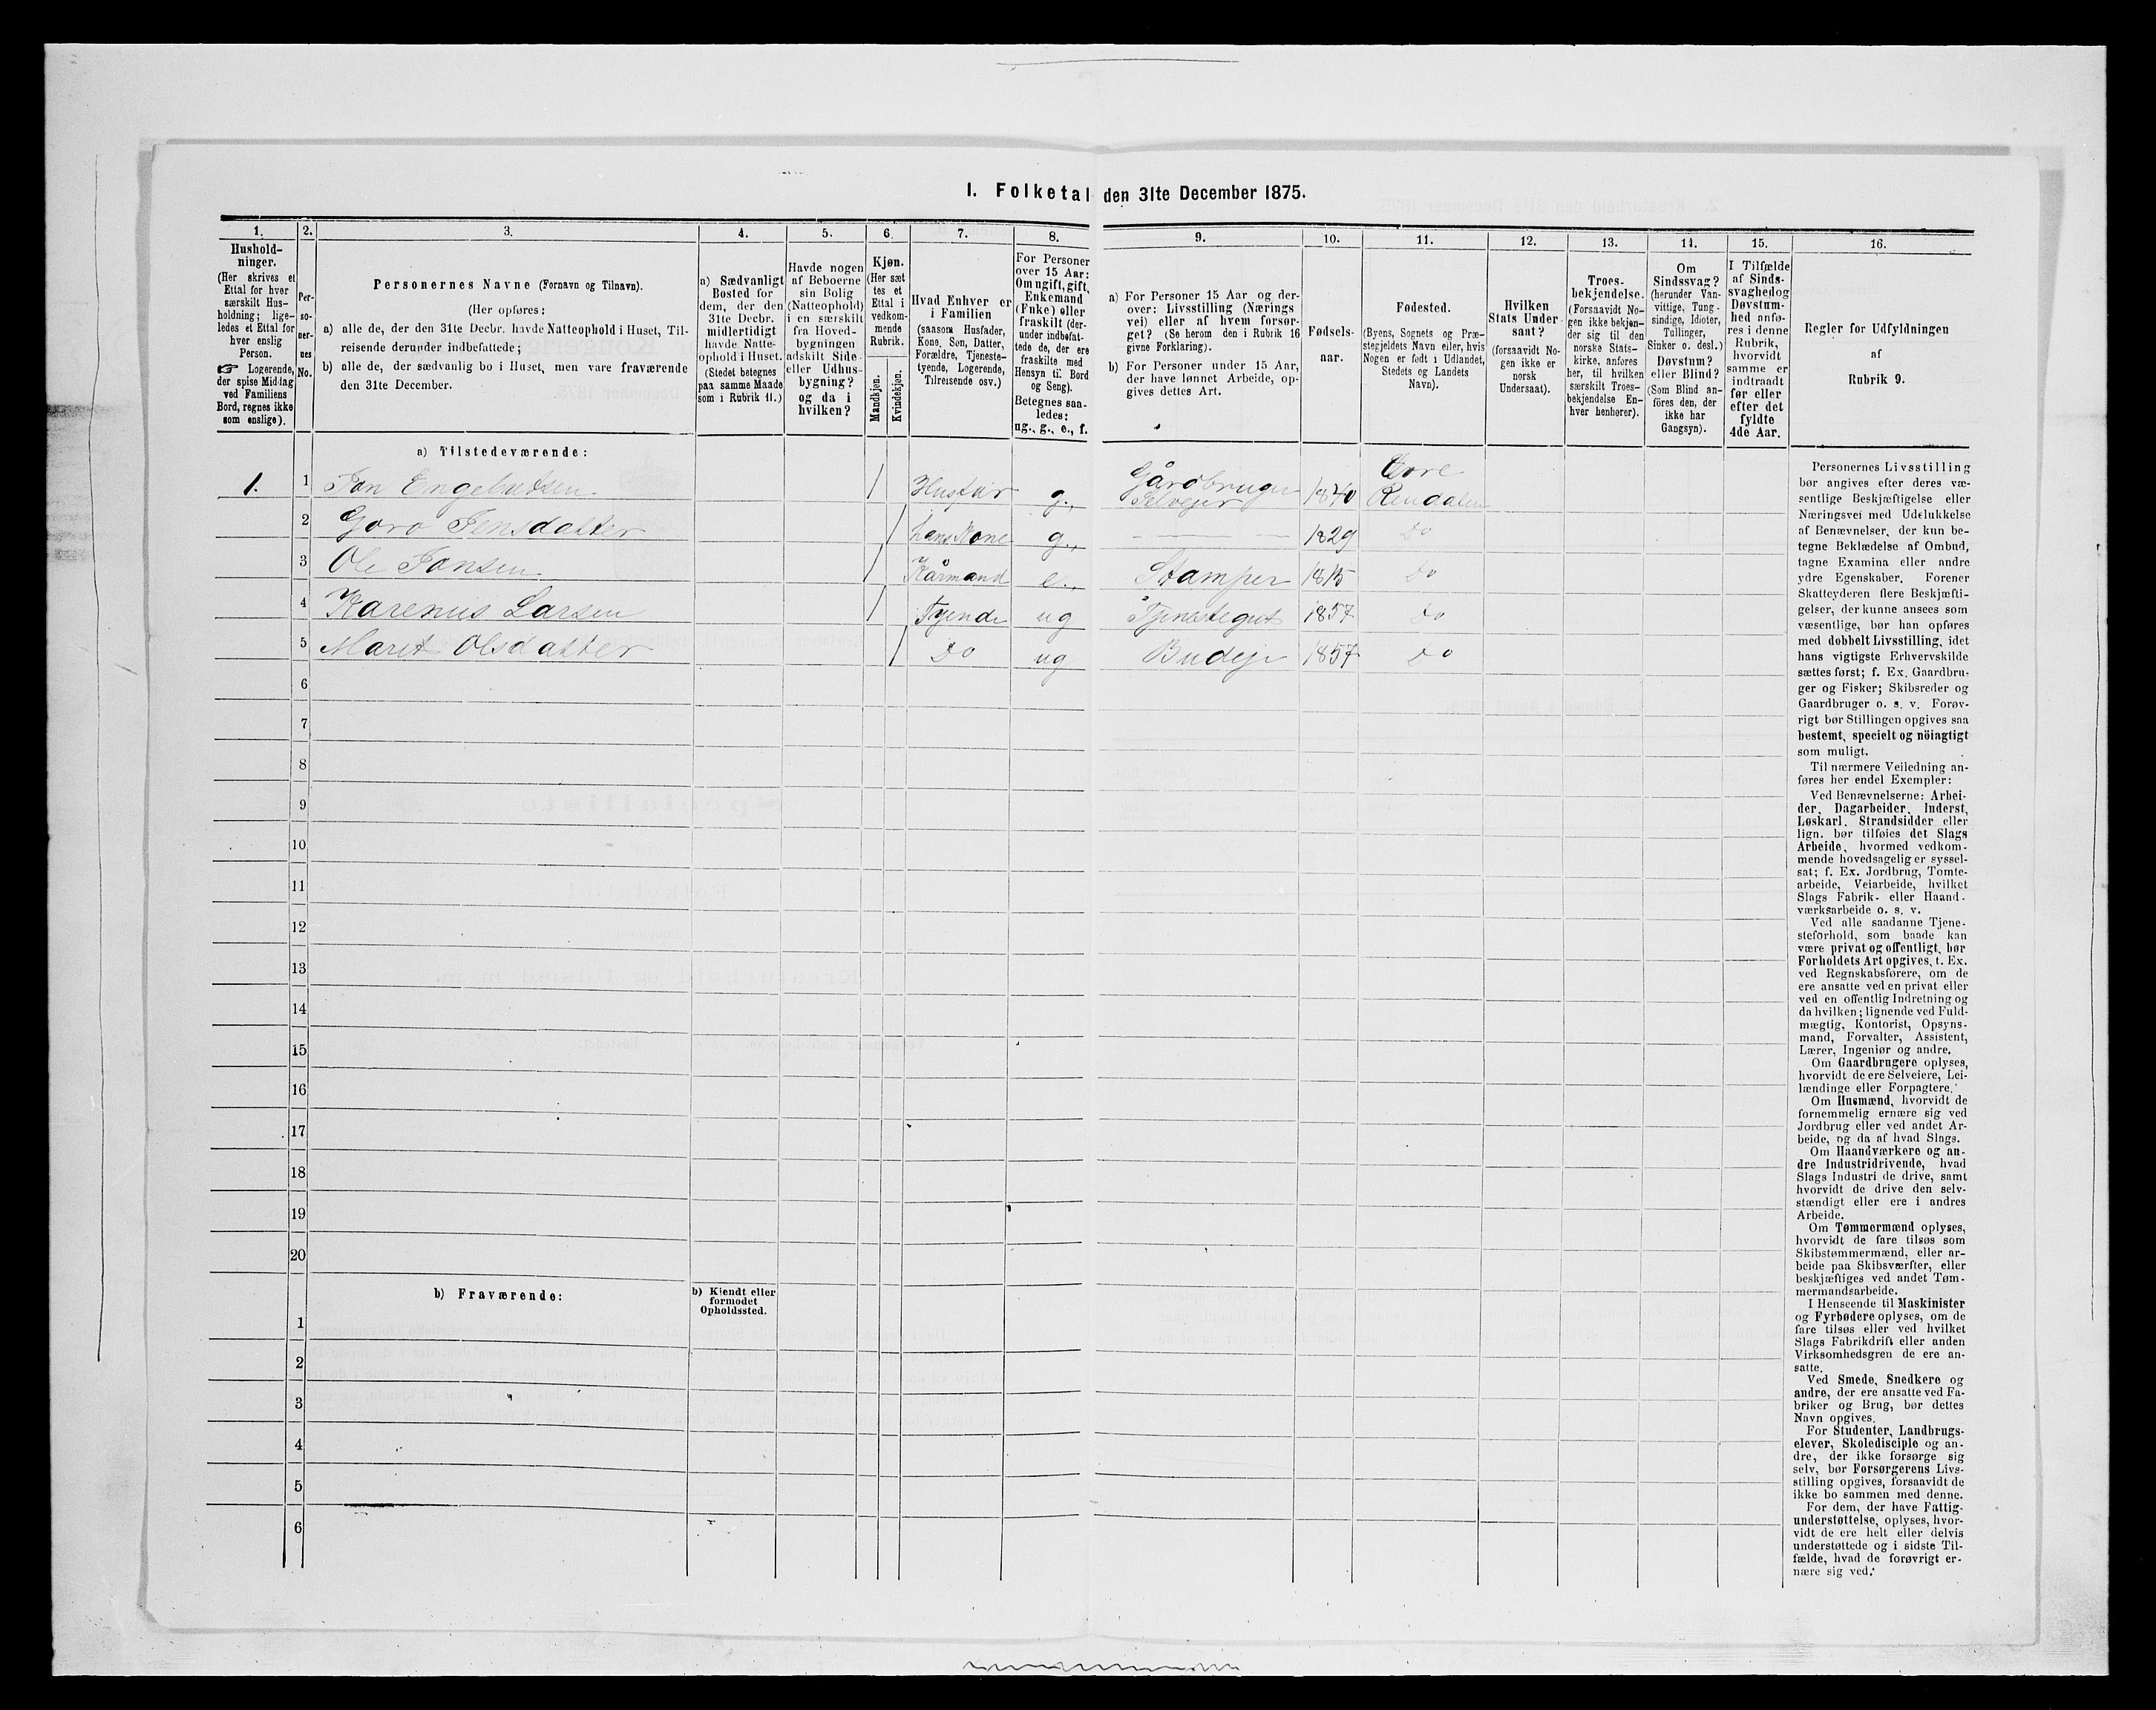 I. Folketal den 31te December 1875.
1. 2. 3. 4. 5. 6. 7. 8. 9. 10. 11. 12. 13. 14. 15. 16.
Hushold-
ninger.
(Her skrives et
Ettal for hver
særskilt Hus-
holdning; lige-
ledes et Ettal for
hver enslig
Person.
☞ Logerende,
der spise Middag
ved Familiens
Bord, regnes ikke
som enslige).
Per-
so-
ner-
nes
No.
Personernes Navne (Fornavn og Tilnavn).
(Her opføres:
a) alle de, der den 31te Decbr. havde Natteophold i Huset, Til-
reisende derunder indbefattede;
b) alle de, der sædvanlig bo i Huset, men vare fraværende
den 31te December.
a) Sædvanligt
Bosted for
dem, der den
31te Decbr.
midlertidigt
havde Natte-
ophold i Huset.
(Stedet betegnes
paa samme Maade
som i Rubrik 11.)
Havde nogen
af Beboerne
sin Bolig
(Natteophold)
i en særskilt
fra Hoved-
bygningen
adskilt Side-
eller Udhus-
bygning?
og da i
hvilken?
Kjøn.
(Her sæt
tes et
Ettal i
vedkom-
mende
Rubrik.
Mandkjøn.
Kvindekjøn.
Hvad Enhver er
i Familien
(saasom Husfader,
Kone, Søn, Datter,
Forældre, Tjeneste-
tyende, Logerende,
Tilreisende osv.)
For Personer
over 15 Aar:
Om ugift, gift,
Enkemand
(Enke) eller
fraskilt (der-
under indbefat-
tede de, der ere
fraskilte med
Hensyn til Bord
og Seng).
Betegnes saa-
ledes:
ug., g., e., f.
a) For Personer 15 Aar og der-
over: Livsstilling (Nærings
vei) eller af hvem forsør-
get? (Se herom den i Rubrik 16
givne Forklaring).
b) For Personer under 15 Aar,
der have lønnet Arbeide, op-
gives dettes Art.
Fødsels-
aar.
Fødested.
(Byens, Sognets og Præ-
stegjeldets Navn eller, hvis
Nogen er født i Udlandet,
Stedets og Landets
Navn).
Hvilken
Stats Under
saat?
(forsaavidt No-
gen ikke er
norsk
Undersaat).
Troes-
bekjendelse.
(Forsaavidt No-
gen ikke bekjen-
der sig til den
norske Stats-
kirke, anføres
her, til hvilken
særskilt Troes-
bekjendelse En-
hver henhører).
Om
Sindssvag?
(herunder Van-
vittige, Tung-
sindige, Idioter,
Tullinger,
Sinker o. desl.)
Døvstum?
eller Blind?
(Som Blind an-
föres den, der
ikke har
Gangsyn).
I Tilfælde
af Sinds-
svaghed og
Døvstum-
hed anfø-
res i denne
Rubrik,
hvorvidt
samme er
indtraadt
før eller
efter det
fyldte
4de Aar.
Regler for Udfyldningen
af
Rubrik 9.
a) Tilstedeværende:
1. 1 Jon Engebretsen / Husfar g., Gårdbruger Selvejer 1840 Øvre Rendalen
2 Goro Jensdatter / hans Kone g., — 1829 Do
3 Ole Jonsen / Kårmand e., Stamper 1815 Do
4 Karenus Larsen / Tyende ug Tjenestegut 1857 Do
5 Marit Olsdatter / Do ug Budeje 1857 Do
6
7
8
9
10
11
12
13
14
15
16
17
18
19
20
b) Fraværende:
b) Kiendt eller
formodet
Opholdssted.
1
2
3
4
5
6
Personernes Livsstilling
bør angives efter deres væ-
sentlige Beskjæftigelse eller
Næringsvei med Udelukkelse
af Benævnelser, der kun be-
tegne Beklædelse af Ombud,
tagne Examina eller andre
ydre Egenskaber. Forener
Skatteyderen flere Beskjæfti-
gelser, der kunne ansees som
væsentlige, bør han opføres
med dobbelt Livsstilling, idet
hans vigtigste Erhvervskilde
sættes først; f. Ex. Gaardbru-
ger og Fisker; Skibsreder og
Gaardbruger o. s. v. Forøv-
rigt bør Stillingen opgives saa
bestemt, specielt og nöiagtigt
som muligt.
Til nærmere Veiledning an-
føres her endel Exempler:
Ved Benævnelserne: Arbei-
der, Dagarbeider, Inderst,
Løskarl, Strandsidder eller
lign. bør tilføies det Slags
Arbeide, hvormed vedkom-
mende hovedsagelig er syssel-
sat; f. Ex. Jordbrug, Tomte-
arbeide, Veiarbeide, hvilket
Slags Fabrik- eller Haand-
værksarbeide o. s. v.
Ved alle saadanne Tjene-
steforhold, som baade kan
være privat og offentligt, bør
Forholdets Art opgives, t. Ex.
ved Regnskabsførere, om de
ere ansatte ved en privat eller
ved en offentlig Indretning og
da hvilken; lignende ved Fuld-
mægtig, Kontorist, Opsyns-
mand, Forvalter, Assistent,
Lærer, Ingeniør og andre.
Om Gaardbrugere oplyses,
hvorvidt de ere Selveiere, Lei-
lændinge eller Forpagtere.
Om Husmænd, hvorvidt de
fornemmelig ernære sig ved
Jordbrug eller ved andet Ar-
beide, og da af hvad Slags.
Om Haandværkere og an-
dre Industridrivende, hvad
Slags Industri de drive, samt
hvorvidt de drive den selv-
stændigt eller ere i andres
Arbeide.
Om Tømmermænd oplyses,
hvorvidt de fare tilsøs som
Skibstømmermænd, eller ar-
beide paa Skibsværfter, eller
beskjæftiges ved andet Tøm-
mermandsarbeide.
I Henseende til Maskinister
og Fyrbødere oplyses, om de
fare tilsøs eller ved hvilket
Slags Fabrikdrift eller anden
Virksomhedsgren de ere an-
satte.
Ved Smede, Snedkere og
andre, der ere ansatte ved Fa-
briker og Brug, bør dettes
Navn opgives.
For Studenter, Landbrugs-
elever, Skoledisciple og an-
dre, der ikke forsørge sig
selv, bør Forsørgerens Livs-
stilling opgives, forsaavidt de
ikke bo sammen med denne.
For dem, der have Fattig-
understøttelse, oplyses, hvor-
vidt de ere helt eller delvis
understøttede og i sidste Til-
fælde, hvad de forøvrigt er-
nære sig ved.